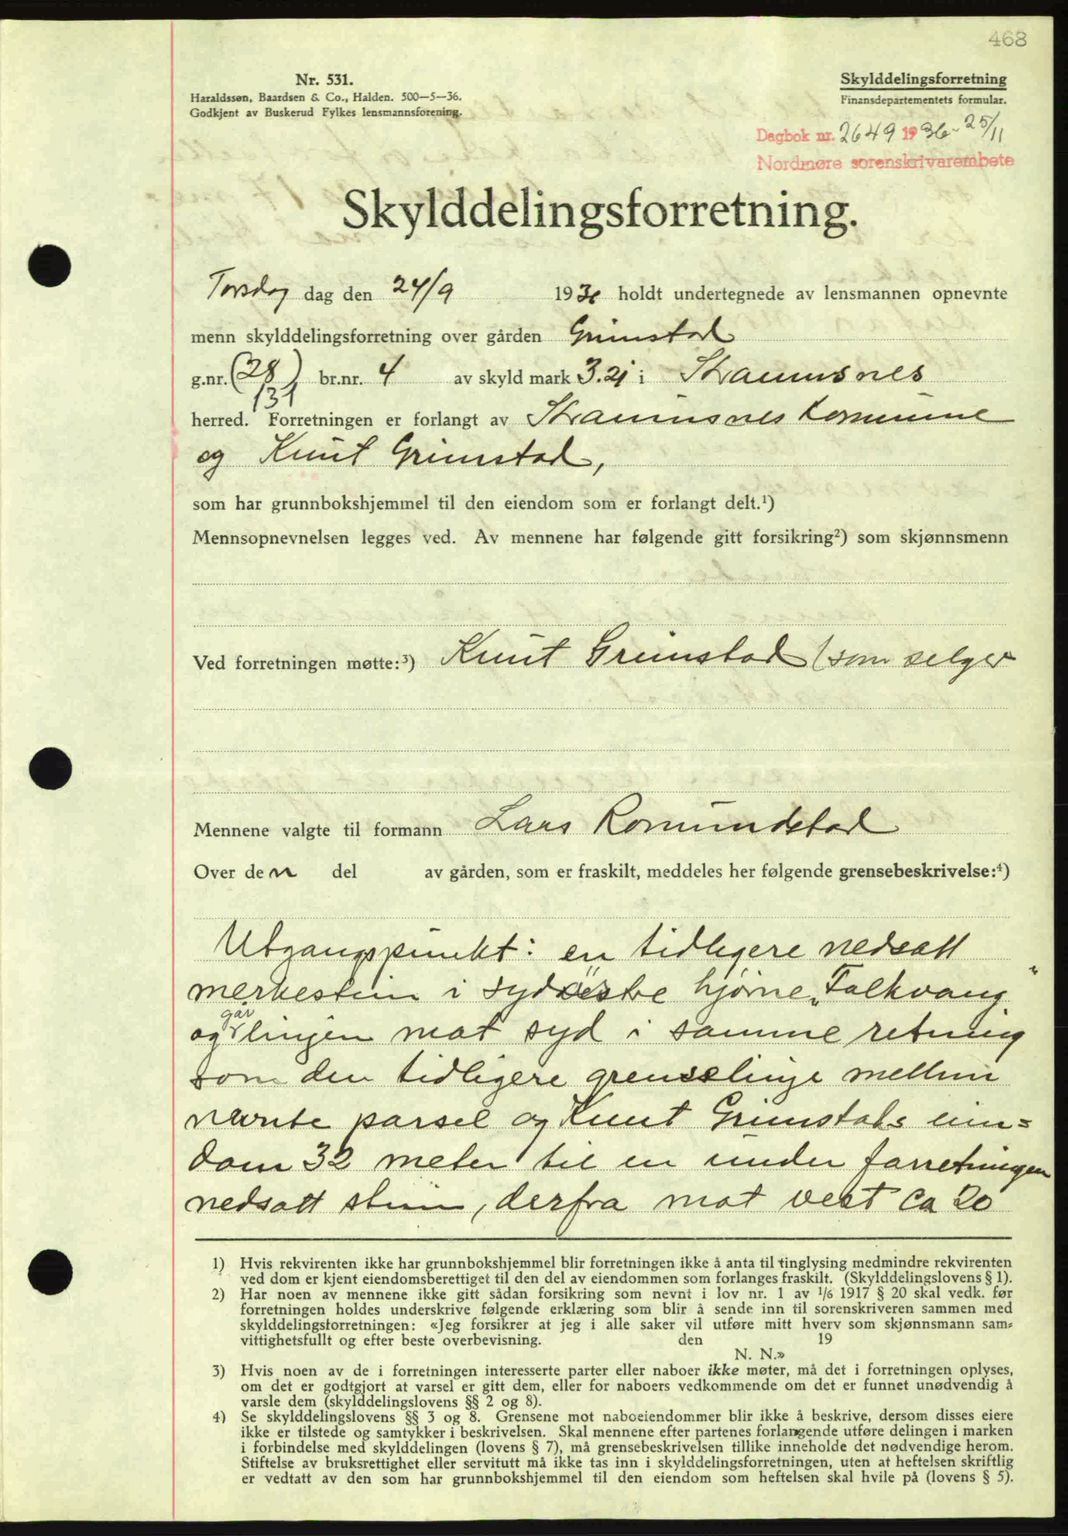 468
Nr. 531.
Haraldssøn, Baardsen & Co., Halden. 500—5—36.
Godkjent av Buskerud Fylkes lensmannsforening.
Skylddelingsforretning
Finansdepartementets formular.
Dagbok nr. 2649 1936 - 25/11
Nordmøre sorenskrivarembete
Skylddelingsforretning.
Torsdag dag den 24/9 1936 holdt undertegnede av lensmannen opnevnte
menn skylddelingsforretning over gården Grimstad
g.nr. (28) br.nr. 4 av skyld mark 3.21 i Straumsnes
131
herred. Forretningen er forlangt av Straumsnes Kommune
og Knut Grimstad,
som har grunnbokshjemmel til den eiendom som er forlangt delt.¹)
Mennsopnevnelsen legges ved. Av mennene har følgende gitt forsikring²) som skjønnsmenn
Ved forretningen møtte:³) Knut Grimstad (som selger
Mennene valgte til formann Lars Romundstad
Over den del av gården, som er fraskilt, meddeles her følgende grensebeskrivelse:⁴)
Utgangspunkt: en tidligere nedsatt
merkestein i sydøstre hjørne „Falkvang"
og går linjen mot syd i samme retning
som den tidligere grenselinje mellem
nevnte parsel og Knut Grimstads eien=
dom 32 meter til en under forretningen
nedsatt stein, derfra mot vest ca 20
1) Hvis rekvirenten ikke har grunnbokshjemmel blir forretningen ikke å anta til tinglysing medmindre rekvirenten
ved dom er kjent eiendomsberettiget til den del av eiendommen som forlanges fraskilt. (Skylddelingslovens § 1).
2) Har noen av mennene ikke gitt sådan forsikring som nevnt i lov nr. 1 av 1/6 1917 § 20 skal vedk. før
forretningen holdes underskrive følgende erklæring som blir å sende inn til sorenskriveren sammen med
skylddelingsforretningen: «Jeg forsikrer at jeg i alle saker vil utføre mitt hverv som skjønnsmann sam=
vittighetsfullt og efter beste overbevisning. den 19
N. N.»
3) Hvis noen av de i forretningen interesserte parter eller naboer ikke møter, må det i forretningen oplyses,
om det er godtgjort at varsel er gitt dem, eller for naboers vedkommende om det er funnet unødvendig å
varsle dem (skylddelingslovens §§ 2 og 8).
4) Se skylddelingslovens §§ 3 og 8. Grensene mot naboeiendommer blir ikke å beskrive, dersom disses eiere
ikke er tilstede og samtykker i beskrivelsen. Skal mennene efter partenes forlangende utføre delingen i marken
i forbindelse med skylddelingen (lovens § 7), må grensebeskrivelsen tillike inneholde det nødvendige herom.
Stiftelse av bruksrettighet eller servitutt må ikke tas inn i skylddelingsforretningen, uten at heftelsen skriftlig
er vedtatt av den som har grunnbokshjemmel til den eiendom som heftelsen skal hvile på (lovens § 5).